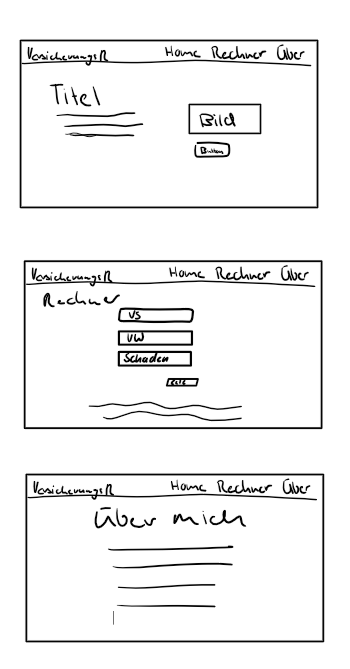 VersicherungsR Home Rechner Über
Titel
Bild
Button
VersicherungsR Home Rechner Über
Rechner
VS
VW
Schaden
calc
VersicherungsR Home Rechner Über
Über mich